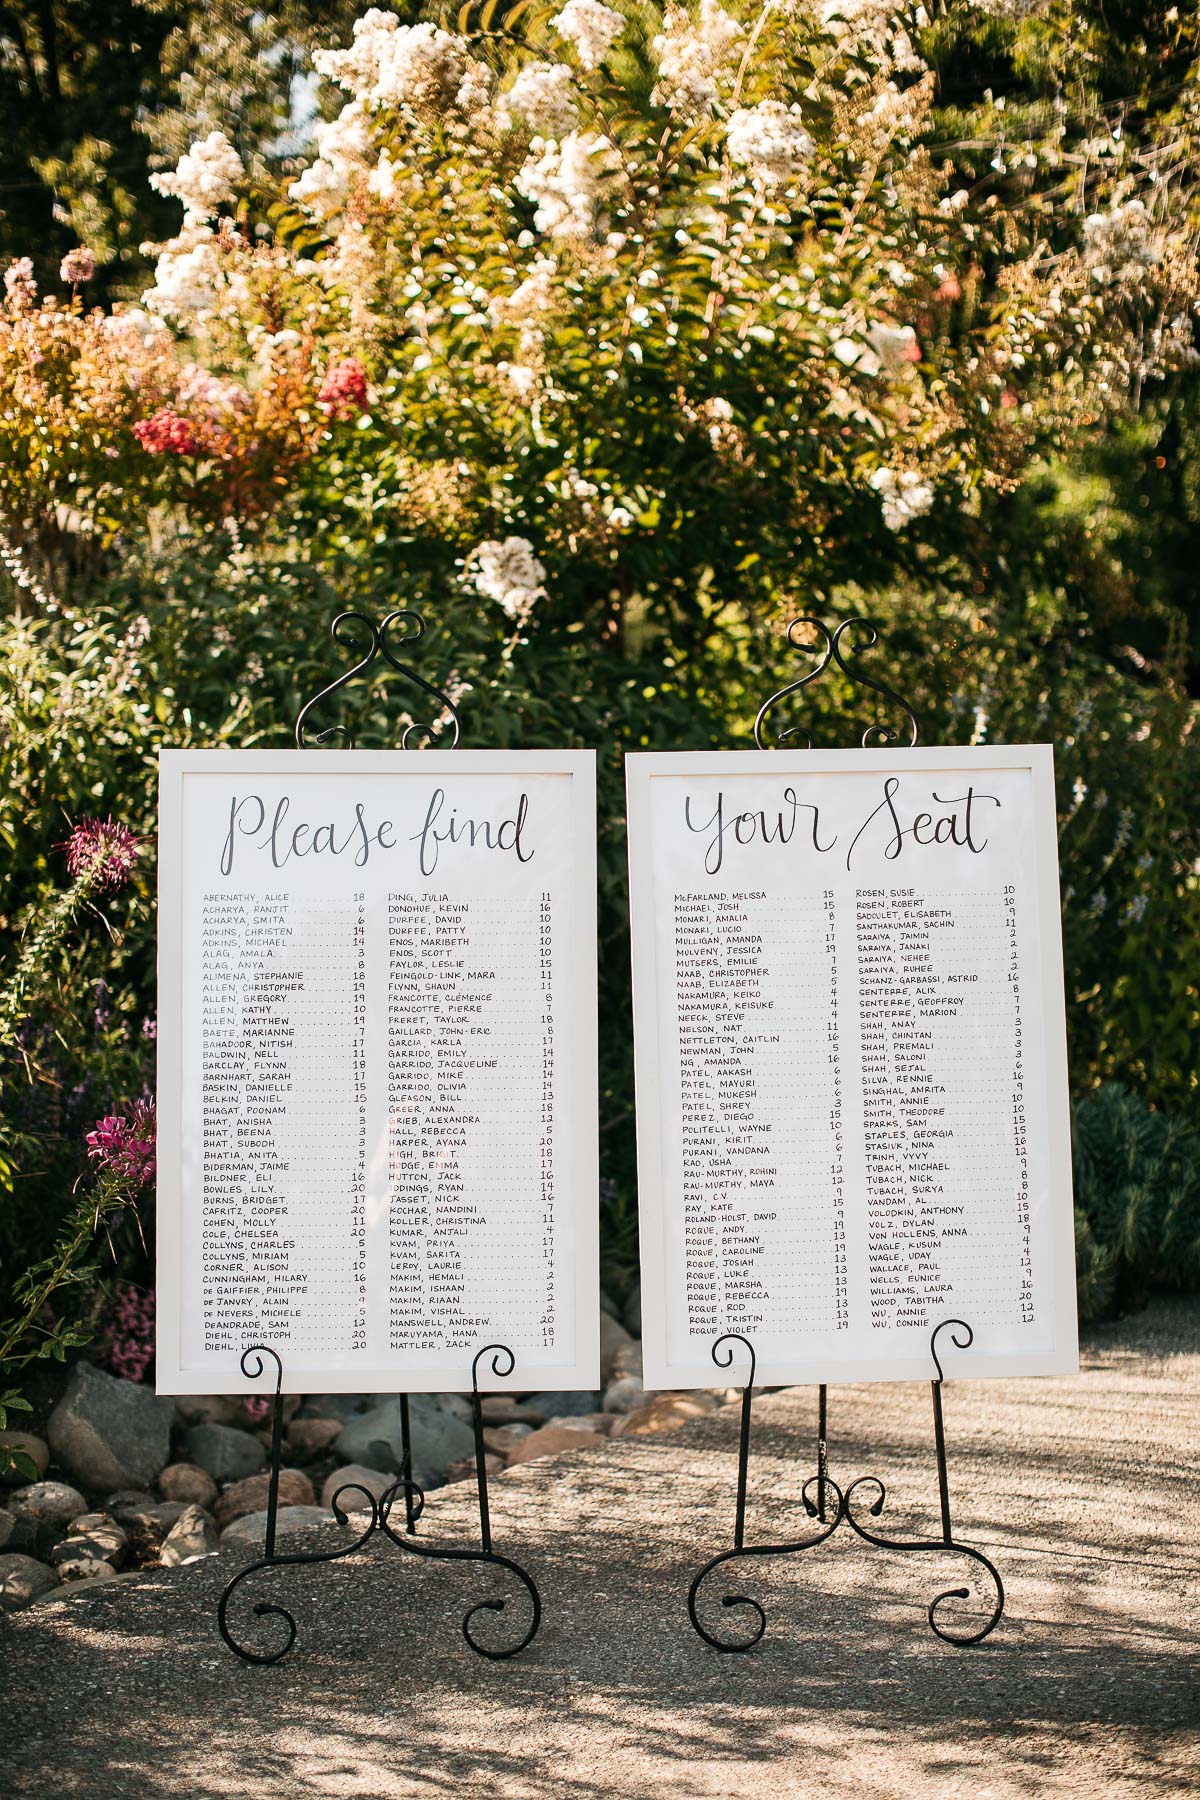 Please find
ABERNATHY, ALICE 18
ACHARYA, RANJIT 6
ACHARYA, SMITA 6
ADKINS, CHRISTEN 14
ADKINS, MICHAEL 14
ALAG, AMALA 3
ALAG, ANYA 8
ALIMENA, STEPHANIE 18
ALLEN, CHRISTOPHER 19
ALLEN, GREGORY 19
ALLEN, KATHY 10
ALLEN, MATTHEW 19
BAETE, MARIANNE 7
BAHADOOR, NITISH 17
BALDWIN, NELL 11
BARCLAY, FLYNN 18
BARNHART, SARAH 17
BASKIN, DANIELLE 15
BELKIN, DANIEL 15
BHAGAT, POONAM 6
BHAT, ANISHA 3
BHAT, BEENA 3
BHAT, SUBODH 3
BHATIA, ANITA 5
BIDERMAN, JAIME 4
BILDNER, ELI 16
BOWLES, LILY 20
BURNS, BRIDGET 17
CAFRITZ, COOPER 20
COHEN, MOLLY 11
COLE, CHELSEA 20
COLLYNS, CHARLES 5
COLLYNS, MIRIAM 5
CORNER, ALISON 10
CUNNINGHAM, HILARY 16
DE GAIFFIER, PHILIPPE 8
DE JANVRY, ALAIN 9
DE NEVERS, MICHELE 5
DEANDRADE, SAM 12
DIEHL, CHRISTOPH 20
DIEHL, LIVIA 20
DING, JULIA 11
DONOHUE, KEVIN 16
DURFEE, DAVID 10
DURFEE, PATTY 10
ENOS, MARIBETH 10
ENOS, SCOTT 10
FAYLOR, LESLIE 15
FEINGOLD-LINK, MARA 11
FLYNN, SHAUN 11
FRANCOTTE, CLÉMENCE 8
FRANCOTTE, PIERRE 7
FRERET, TAYLOR 18
GAILLARD, JOHN-ERIC 8
GARCIA, KARLA 17
GARRIDO, EMILY 14
GARRIDO, JACQUELINE 14
GARRIDO, MIKE 14
GARRIDO, OLIVIA 14
GLEASON, BILL 13
GREER, ANNA 18
GRIEB, ALEXANDRA 12
HALL, REBECCA 5
HARPER, AYANA 20
HIGH, BRIGIT 18
HODGE, EMMA 17
HUTTON, JACK 16
IDDINGS, RYAN 14
JASSET, NICK 16
KOCHAR, NANDINI 7
KOLLER, CHRISTINA 11
KUMAR, ANJALI 4
KVAM, PRIYA 17
KVAM, SARITA 17
LEROY, LAURIE 4
MAKIM, HEMALI 2
MAKIM, ISHAAN 2
MAKIM, RIAAN 2
MAKIM, VISHAL 2
MANSWELL, ANDREW 20
MARUYAMA, HANA 18
MATTLER, ZACK 17
Your Seat
McFARLAND, MELISSA 15
MICHAEL, JOSH 15
MONARI, AMALIA 8
MONARI, LUCIO 7
MULLIGAN, AMANDA 17
MULVENY, JESSICA 19
MUTSERS, EMILIE 7
NAAB, CHRISTOPHER 5
NAAB, ELIZABETH 5
NAKAMURA, KEIKO 4
NAKAMURA, KEISUKE 4
NEECK, STEVE 4
NELSON, NAT 11
NETTLETON, CAITLIN 16
NEWMAN, JOHN 5
NG, AMANDA 16
PATEL, AAKASH 6
PATEL, MAYURI 6
PATEL, MUKESH 6
PATEL, SHREY 3
PEREZ, DIEGO 15
POLITELLI, WAYNE 10
PURANI, KIRIT 6
PURANI, VANDANA 6
RAO, USHA 7
RAU-MURTHY, ROHINI 12
RAU-MURTHY, MAYA 12
RAVI, C.V. 9
RAY, KATE 15
ROLAND-HOLST, DAVID 9
ROQUE, ANDY 19
ROQUE, BETHANY 13
ROQUE, CAROLINE 19
ROQUE, JOSIAH 13
ROQUE, LUKE 13
ROQUE, MARSHA 13
ROQUE, REBECCA 19
ROQUE, ROD 13
ROQUE, TRISTIN 13
ROQUE, VIOLET 19
ROSEN, SUSIE 10
ROSEN, ROBERT 10
SADOULET, ELISABETH 9
SANTHAKUMAR, SACHIN 11
SARAIYA, JAIMIN 2
SARAIYA, JANAKI 2
SARAIYA, NEHEE 2
SARAIYA, RUHEE 2
SCHANZ-GARBASSI, ASTRID 16
SENTERRE, ALIX 8
SENTERRE, GEOFFROY 7
SENTERRE, MARION 7
SHAH, ANAY 3
SHAH, CHINTAN 3
SHAH, PREMALI 3
SHAH, SALONI 3
SHAH, SEJAL 6
SILVA, RENNIE 16
SINGHAL, AMRITA 9
SMITH, ANNIE 10
SMITH, THEODORE 10
SPARKS, SAM 15
STAPLES, GEORGIA 15
STASIUK, NINA 16
TRINH, VYVY 12
TUBACH, MICHAEL 9
TUBACH, NICK 8
TUBACH, SURYA 8
VANDAM, AL 10
VOLODKIN, ANTHONY 15
VOLZ, DYLAN 18
VON HOLLENS, ANNA 9
WAGLE, KUSUM 4
WAGLE, UDAY 4
WALLACE, PAUL 12
WELLS, EUNICE 9
WILLIAMS, LAURA 16
WOOD, TABITHA 20
WU, ANNIE 12
WU, CONNIE 12